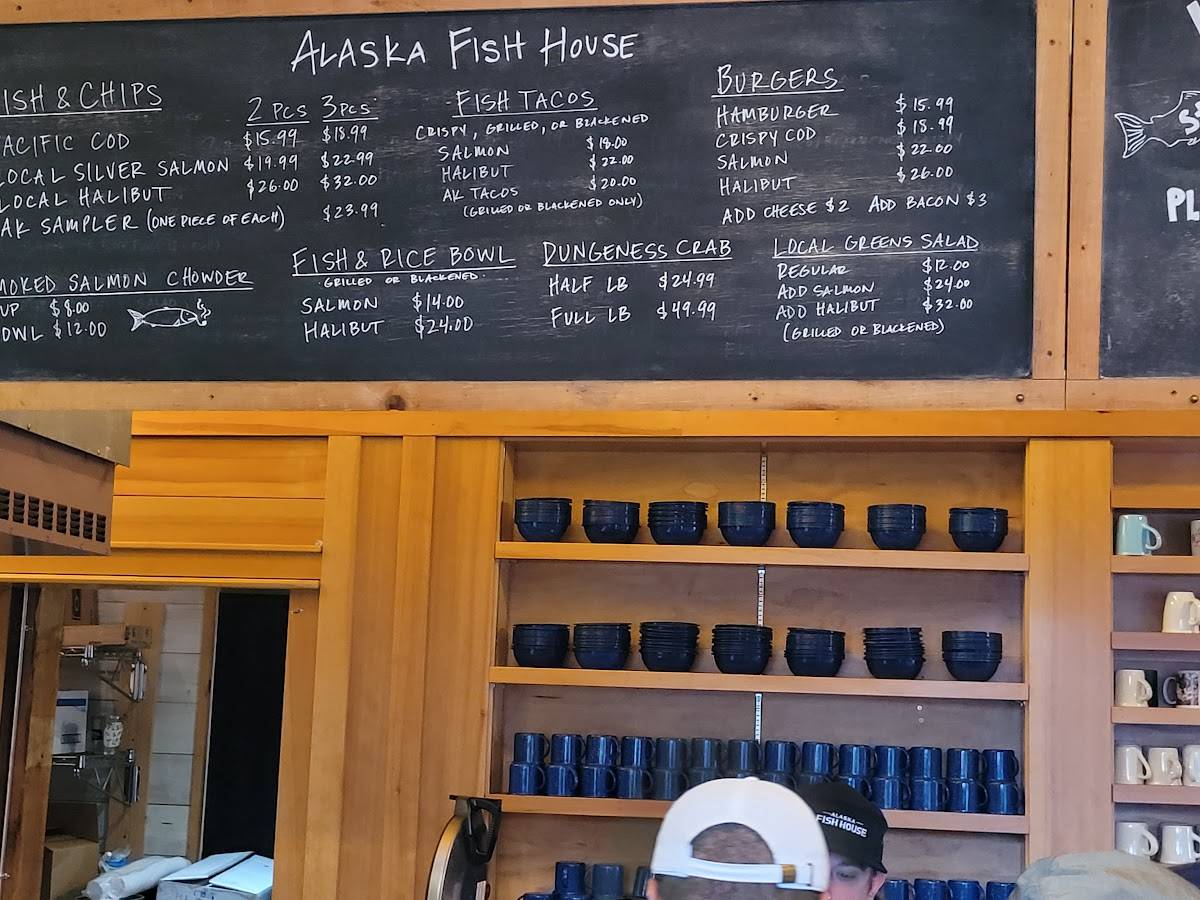 ALASKA FISH HOUSE
ISH & CHIPS
2 PCS 3 PCS
ACIFIC COD $15.99 $18.99
LOCAL SILVER SALMON $19.99 $22.99
LOCAL HALIBUT $26.00 $32.00
AK SAMPLER (ONE PIECE OF EACH) $23.99
MOKED SALMON CHOWDER
UP $8.00
OWL $12.00
FISH TACOS
CRISPY, GRILLED, OR BLACKENED
SALMON $18.00
HALIBUT $22.00
AK TACOS $20.00
(GRILLED OR BLACKENED ONLY)
FISH & RICE BOWL
GRILLED OR BLACKENED
SALMON $14.00
HALIBUT $24.00
BURGERS
HAMBURGER $15.99
CRISPY COD $18.99
SALMON $22.00
HALIBUT $26.00
ADD CHEESE $2 ADD BACON $3
DUNGENESS CRAB
HALF LB $24.99
FULL LB $49.99
LOCAL GREENS SALAD
REGULAR $12.00
ADD SALMON $24.00
ADD HALIBUT $32.00
(GRILLED OR BLACKENED)
PL
ALASKA
FISH HOUSE